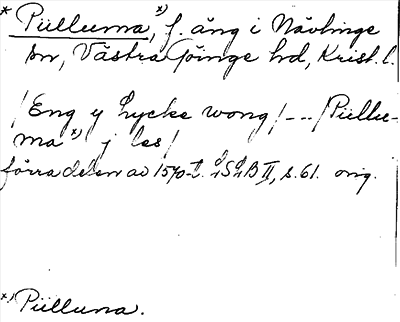 * Pülluma, x) f. äng i Nävlinge
sn, Västra Göinge hd, Krist. l.
/Eng y hycke wong/ --- /Püllu-
ma x) j les/
förra delen av 1570-t. LSLB II, s. 61. orig.
x) Püllüna.